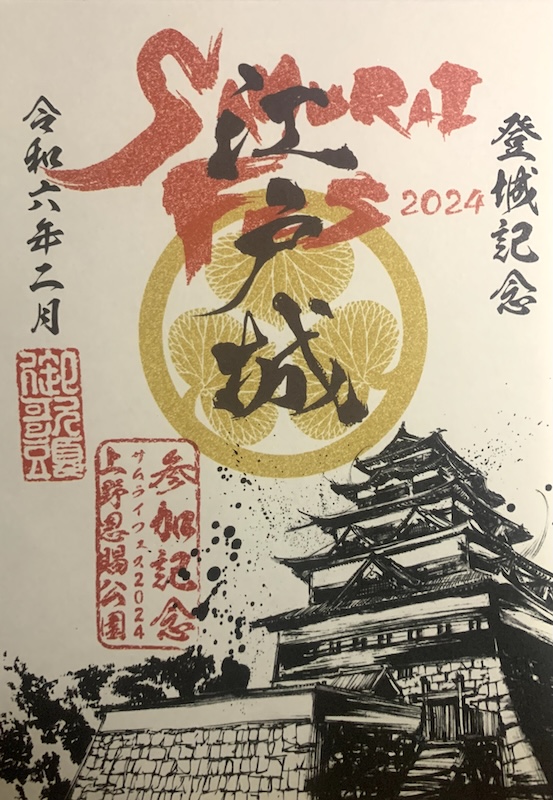 SAMURAI
FES 2024
登城記念
江戸城
令和六年二月
参加記念
サムライフェス2024
上野恩賜公園